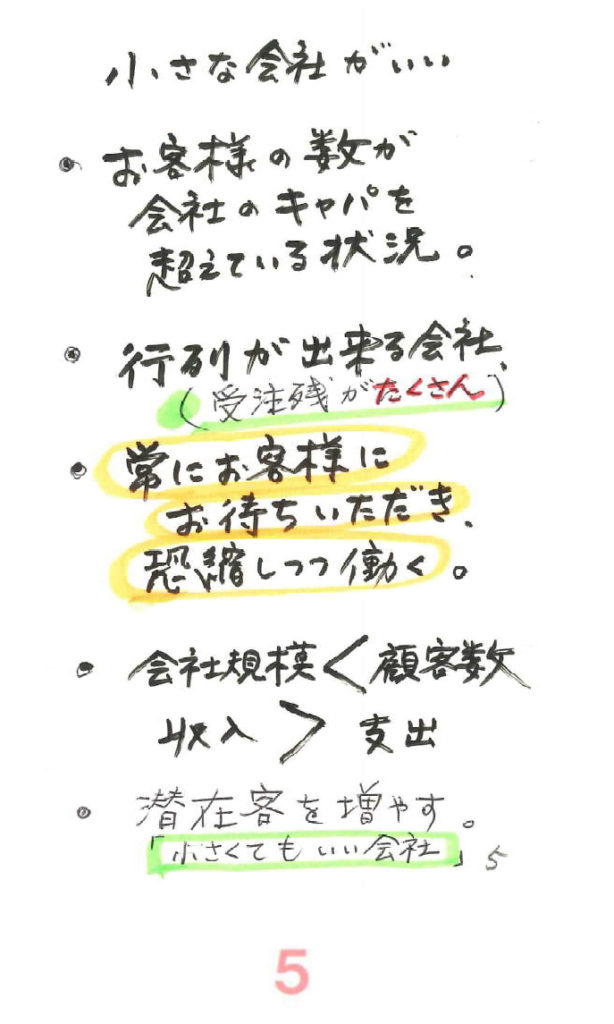 小さな会社がいい
• お客様の数が
会社のキャパを
超えている状況。
• 行列が出来る会社
(受注残がたくさん)
• 常にお客様に
お待ちいただき、
恐縮しつつ働く。
• 会社規模<顧客数
収入>支出
• 潜在客を増やす。
「小さくてもいい会社」 5
5